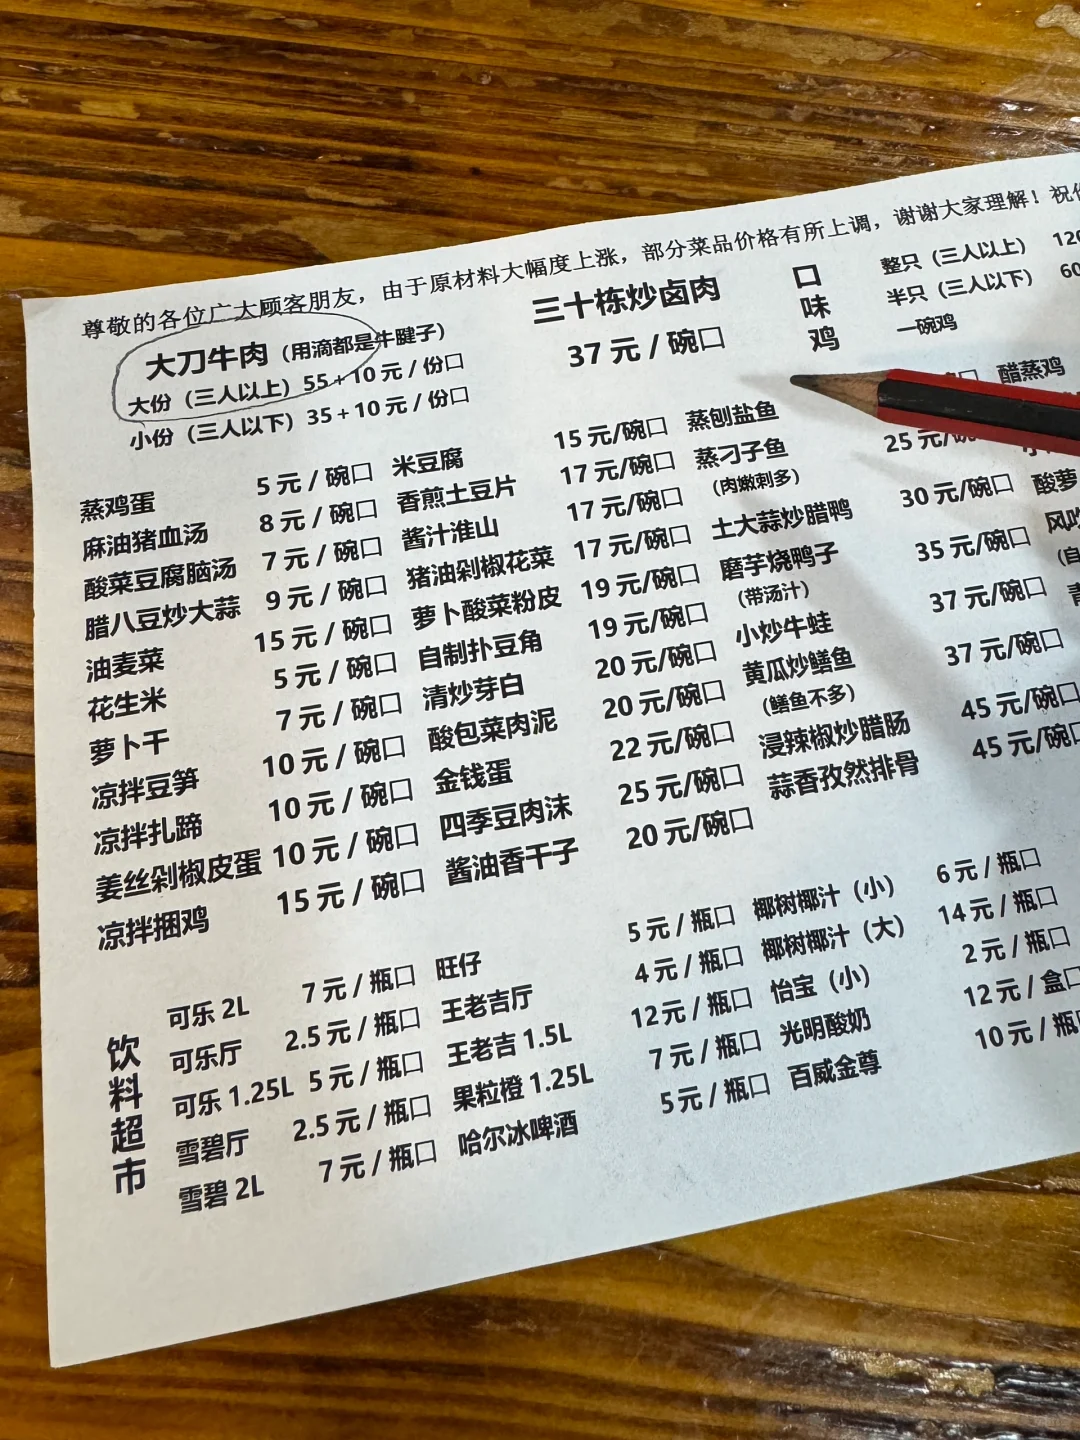 尊敬的各位广大顾客朋友，由于原材料大幅度上涨，部分菜品价格有所上调，谢谢大家理解！祝
大刀牛肉（用滴都是牛腱子）
大份（三人以上）55+10 元 / 份口
小份（三人以下）35+10 元 / 份口
三十栋炒卤肉
37 元 / 碗口
口味鸡
整只（三人以上） 120
半只（三人以下） 60
一碗鸡
蒸鸡蛋 5 元 / 碗口 米豆腐 15 元/碗口 蒸刨盐鱼 口 醋蒸鸡
麻油猪血汤 8 元 / 碗口 香煎土豆片 17 元/碗口 蒸刁子鱼 25 元/碗
（肉嫩刺多）
酸菜豆腐脑汤 7 元 / 碗口 酱汁淮山 17 元/碗口 土大蒜炒腊鸭 30 元/碗口 酸萝
腊八豆炒大蒜 9 元 / 碗口 猪油剁椒花菜 17 元/碗口 磨芋烧鸭子 35 元/碗口 风吹
（带汤汁） （自
油麦菜 15 元 / 碗口 萝卜酸菜粉皮 19 元/碗口 小炒牛蛙 37 元/碗口
花生米 5 元 / 碗口 自制扑豆角 19 元/碗口 黄瓜炒鳝鱼 37 元/碗口
（鳝鱼不多）
萝卜干 7 元 / 碗口 清炒芽白 20 元/碗口 浸辣椒炒腊肠 45 元/碗口
凉拌豆笋 10 元 / 碗口 酸包菜肉泥 20 元/碗口 蒜香孜然排骨 45 元/碗口
凉拌扎蹄 10 元 / 碗口 金钱蛋 22 元/碗口
姜丝剁椒皮蛋 10 元 / 碗口 四季豆肉沫 25 元/碗口
凉拌捆鸡 15 元 / 碗口 酱油香干子 20 元/碗口
饮料超市
可乐 2L 7 元 / 瓶口 旺仔 5 元 / 瓶口 椰树椰汁（小） 6 元 / 瓶口
可乐厅 2.5 元 / 瓶口 王老吉厅 4 元 / 瓶口 椰树椰汁（大） 14 元 / 瓶口
可乐 1.25L 5 元 / 瓶口 王老吉 1.5L 12元 / 瓶口 怡宝（小） 2 元 / 瓶口
雪碧厅 2.5 元 / 瓶口 果粒橙 1.25L 7 元 / 瓶口 光明酸奶 12 元 / 盒口
雪碧 2L 7 元 / 瓶口 哈尔冰啤酒 5元 / 瓶口 百威金尊 10 元 / 瓶